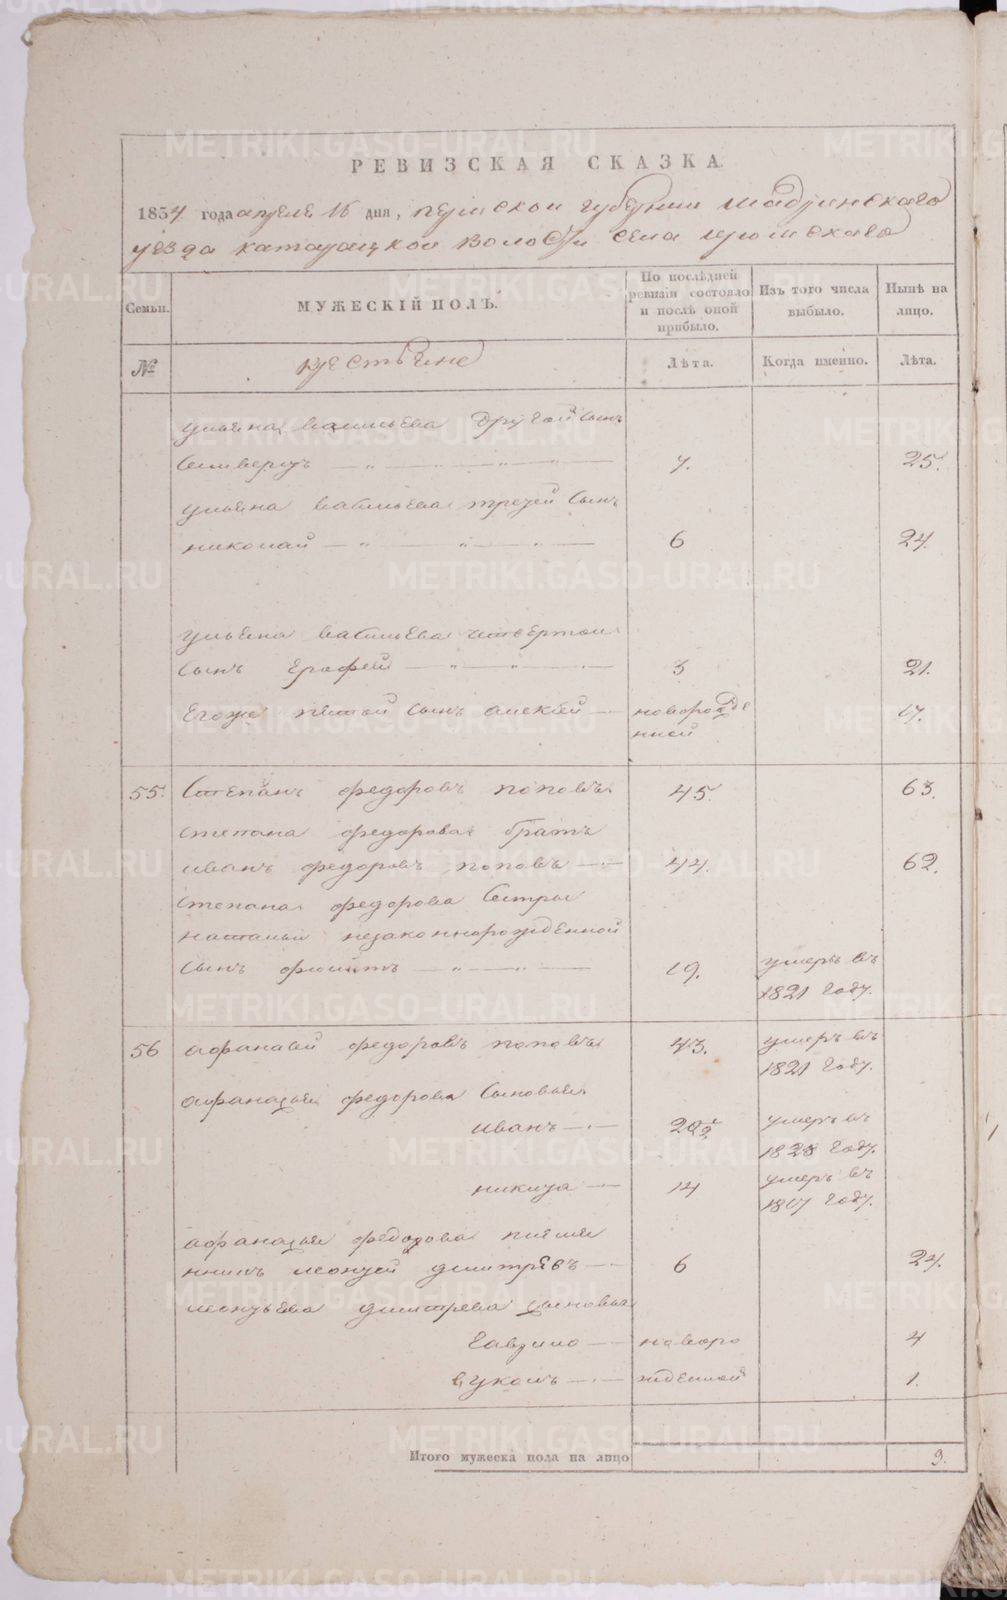 РЕВИЗСКАЯ СКАЗКА.
1834 года апреля 16 дня, пермской губернии шадринскаго
уезда катайцкой волости села
Семьи.
МУЖЕСКІЙ ПОЛЪ.
По послѣдней ревизіи состояло и послѣ оной прибыло.
Изъ того числа выбыло.
Нынѣ на лицо.
№
крестьяне
Лѣта.
Когда именно.
Лѣта.
ульяна васильева другой сынъ
Селиверстъ 7. 25.
ульяна васильева третей сынъ
николай 6 24.
ульяна васильева четвертой
сынъ Ерофей 3 21.
Егоже пятой сынъ алексей новорожде 17.
нной
55. Степанъ федоровъ поповъ 45. 63.
степана федорова братъ
иванъ федоровъ поповъ 44. 62.
степана федорова сестры
натальи незаконнорожденной
сынъ 19. умеръ въ
1821 году.
56 афанасей федоровъ поповъ 43. умеръ въ
1821 году.
афанасья федорова сыновья
иванъ умеръ въ
1828 году.
никита 14 умеръ въ
1817 году.
афанасья федорова племя
нникъ леонтей дмитревъ 6 24.
леонтьева дмитрева сыновья
гаврило новоро 4
вуколъ жденной 1.
Итого мужеска пола на лицо 9.
METRIKI.GASO-URAL.RU